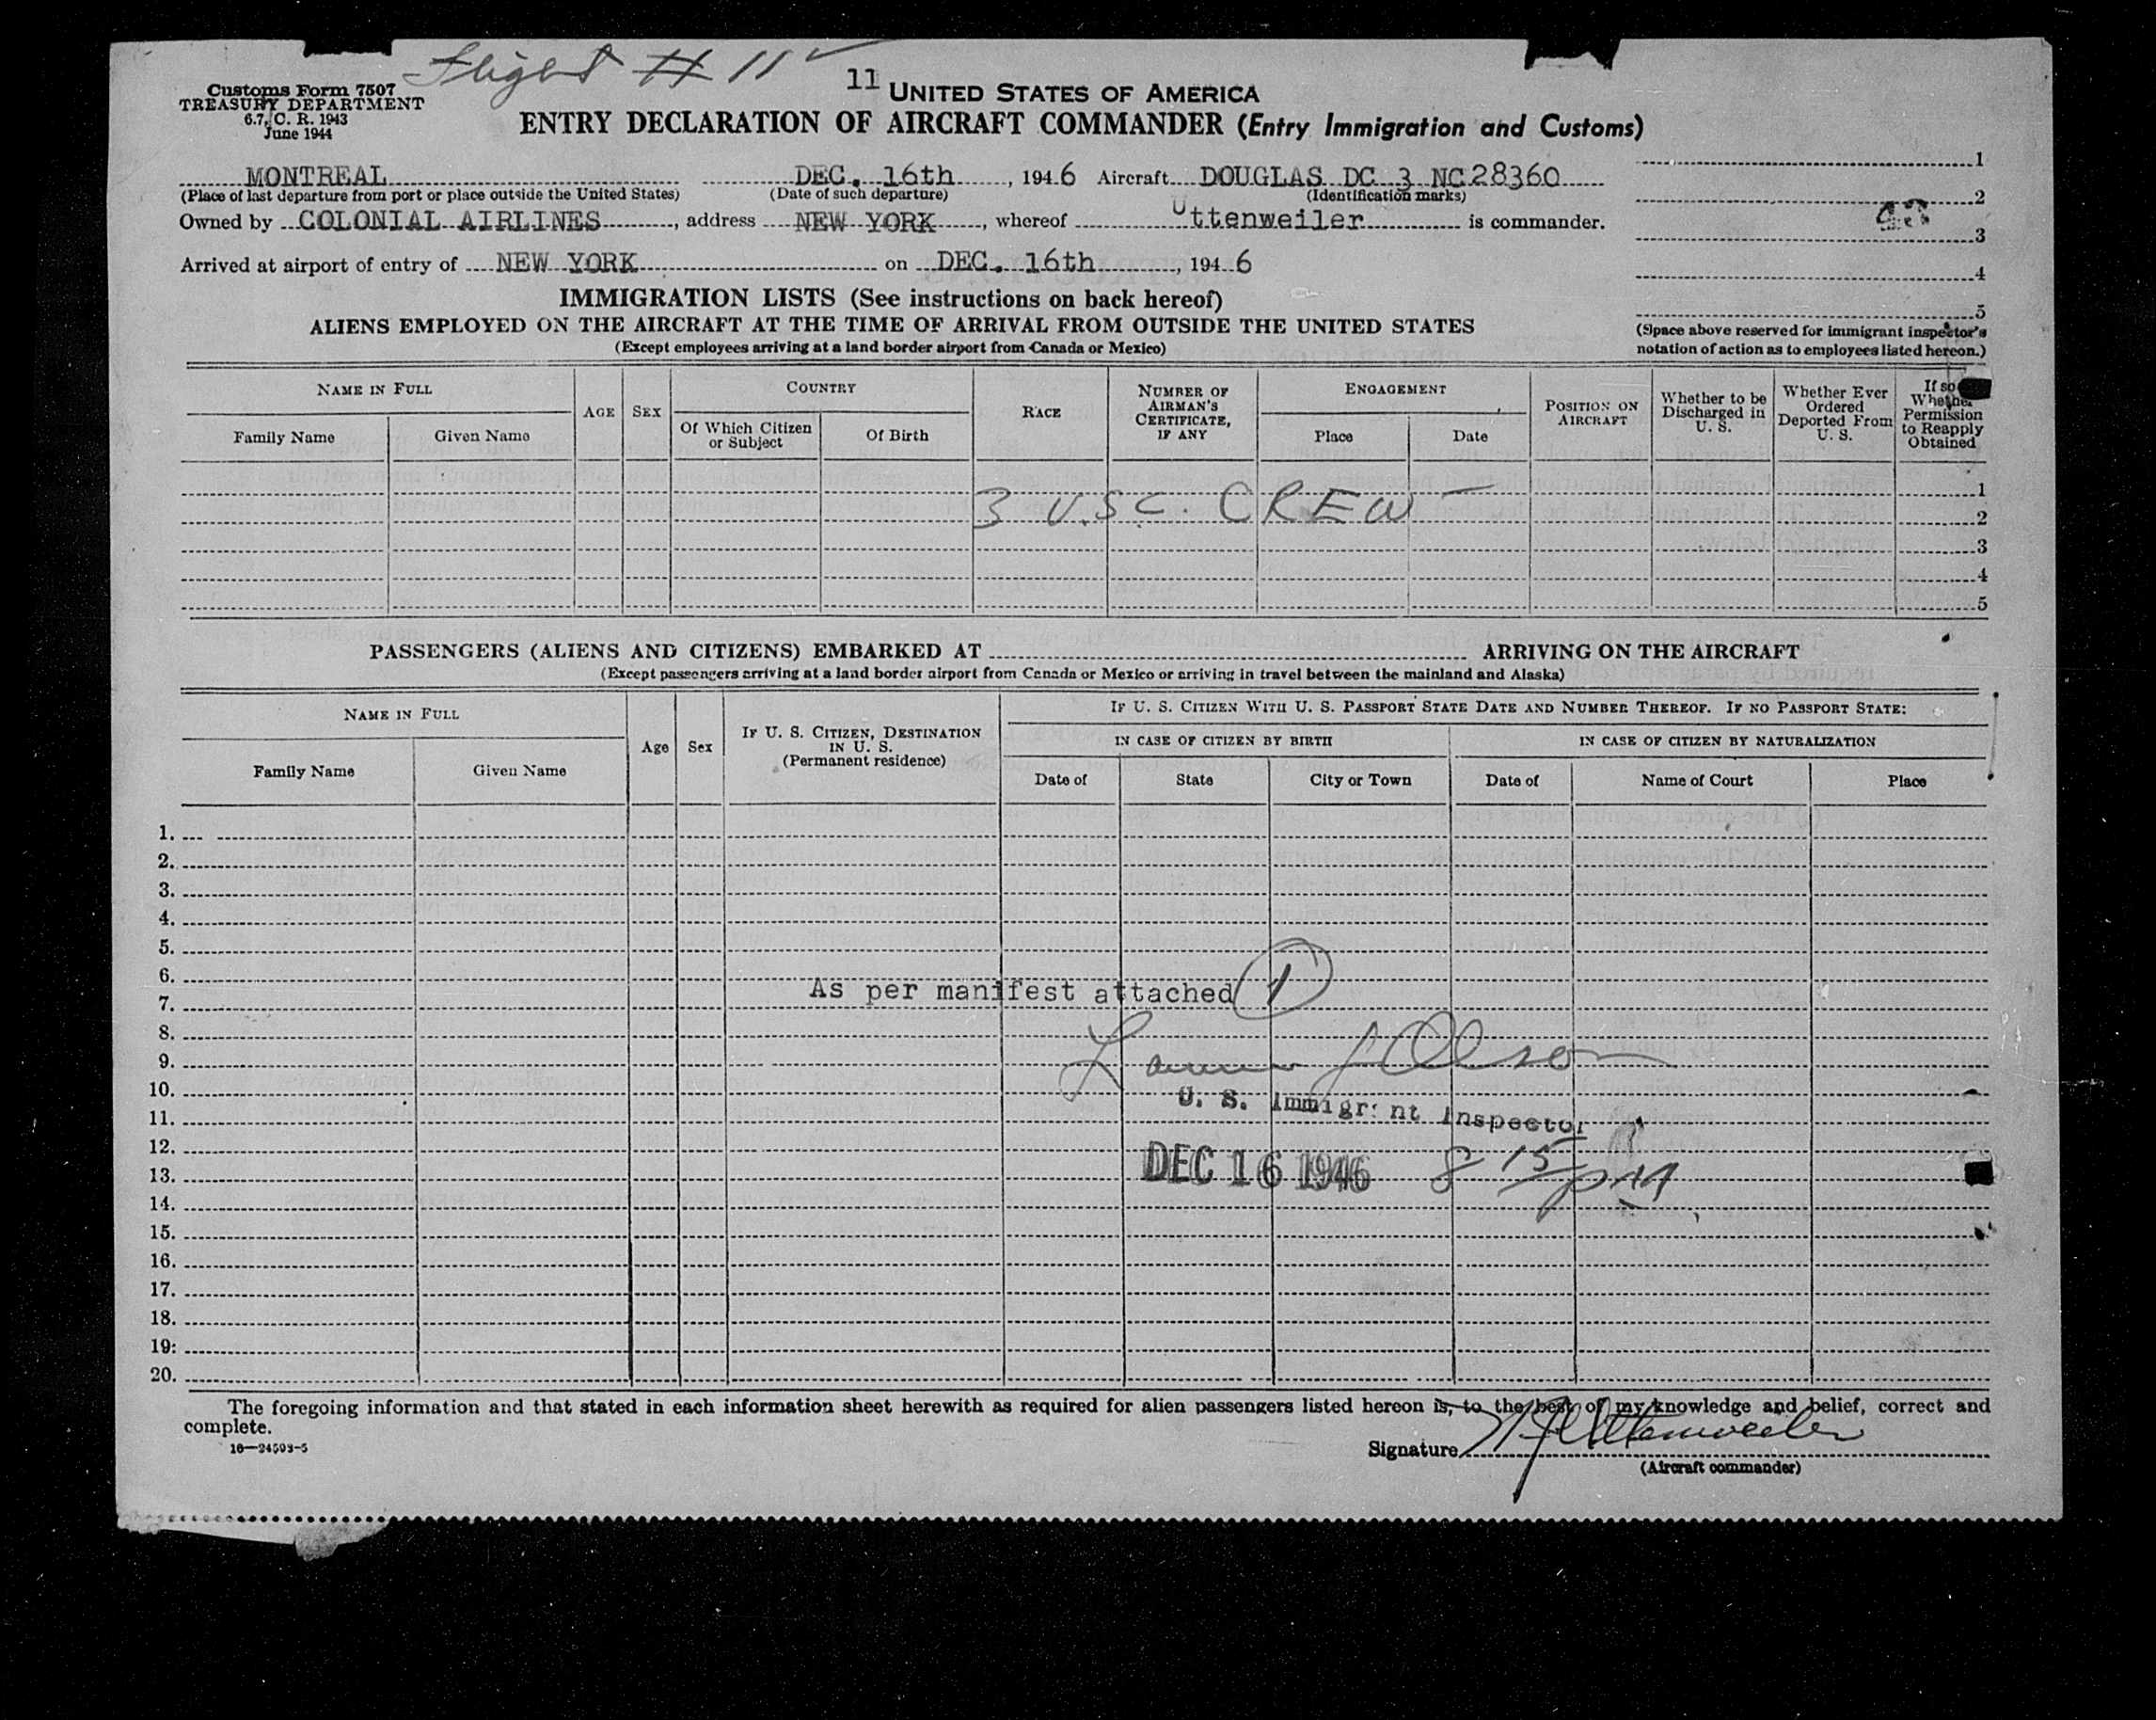 Flight # 11
11
Customs Form 7507
TREASURY DEPARTMENT
6.7, C. R. 1943
June 1944
UNITED STATES OF AMERICA
ENTRY DECLARATION OF AIRCRAFT COMMANDER (Entry Immigration and Customs)
MONTREAL DEC. 16th, 1946 Aircraft DOUGLAS DC 3 NC28360
(Place of last departure from port or place outside the United States) (Date of such departure) (Identification marks)
Owned by COLONIAL AIRLINES, address NEW YORK, whereof Uttenweiler is commander.
Arrived at airport of entry of NEW YORK on DEC. 16th, 1946
1
2
3
4
5
(Space above reserved for immigrant inspector's
notation of action as to employees listed hereon.)
IMMIGRATION LISTS (See instructions on back hereof)
ALIENS EMPLOYED ON THE AIRCRAFT AT THE TIME OF ARRIVAL FROM OUTSIDE THE UNITED STATES
(Except employees arriving at a land border airport from Canada or Mexico)
NAME IN FULL
Family Name
Given Name
AGE
SEX
COUNTRY
Of Which Citizen
or Subject
Of Birth
RACE
NUMBER OF
AIRMAN'S
CERTIFICATE,
IF ANY
ENGAGEMENT
Place
Date
POSITION ON
AIRCRAFT
Whether to be
Discharged in
U. S.
Whether Ever
Ordered
Deported From
U. S.
If so
Whether
Permission
to Reapply
Obtained
1
3 U.S.C. CREW
2
3
4
5
PASSENGERS (ALIENS AND CITIZENS) EMBARKED AT ARRIVING ON THE AIRCRAFT
(Except passengers arriving at a land border airport from Canada or Mexico or arriving in travel between the mainland and Alaska)
NAME IN FULL
Family Name
Given Name
Age
Sex
IF U. S. CITIZEN, DESTINATION
IN U. S.
(Permanent residence)
IF U. S. CITIZEN WITH U. S. PASSPORT STATE DATE AND NUMBER THEREOF. IF NO PASSPORT STATE:
IN CASE OF CITIZEN BY BIRTH
Date of
State
City or Town
IN CASE OF CITIZEN BY NATURALIZATION
Date of
Name of Court
Place
1.
2.
3.
4.
5.
6.
As per manifest attached 1
7.
8.
9. Olson
10.
U. S. Immigrant Inspector
11.
12.
13. DEC 16 1946 8 15 PM
14.
15.
16.
17.
18.
19.
20.
The foregoing information and that stated in each information sheet herewith as required for alien passengers listed hereon is, to the best of my knowledge and belief, correct and
complete.
16—24593-5
Signature Uttenweiler
(Aircraft commander)